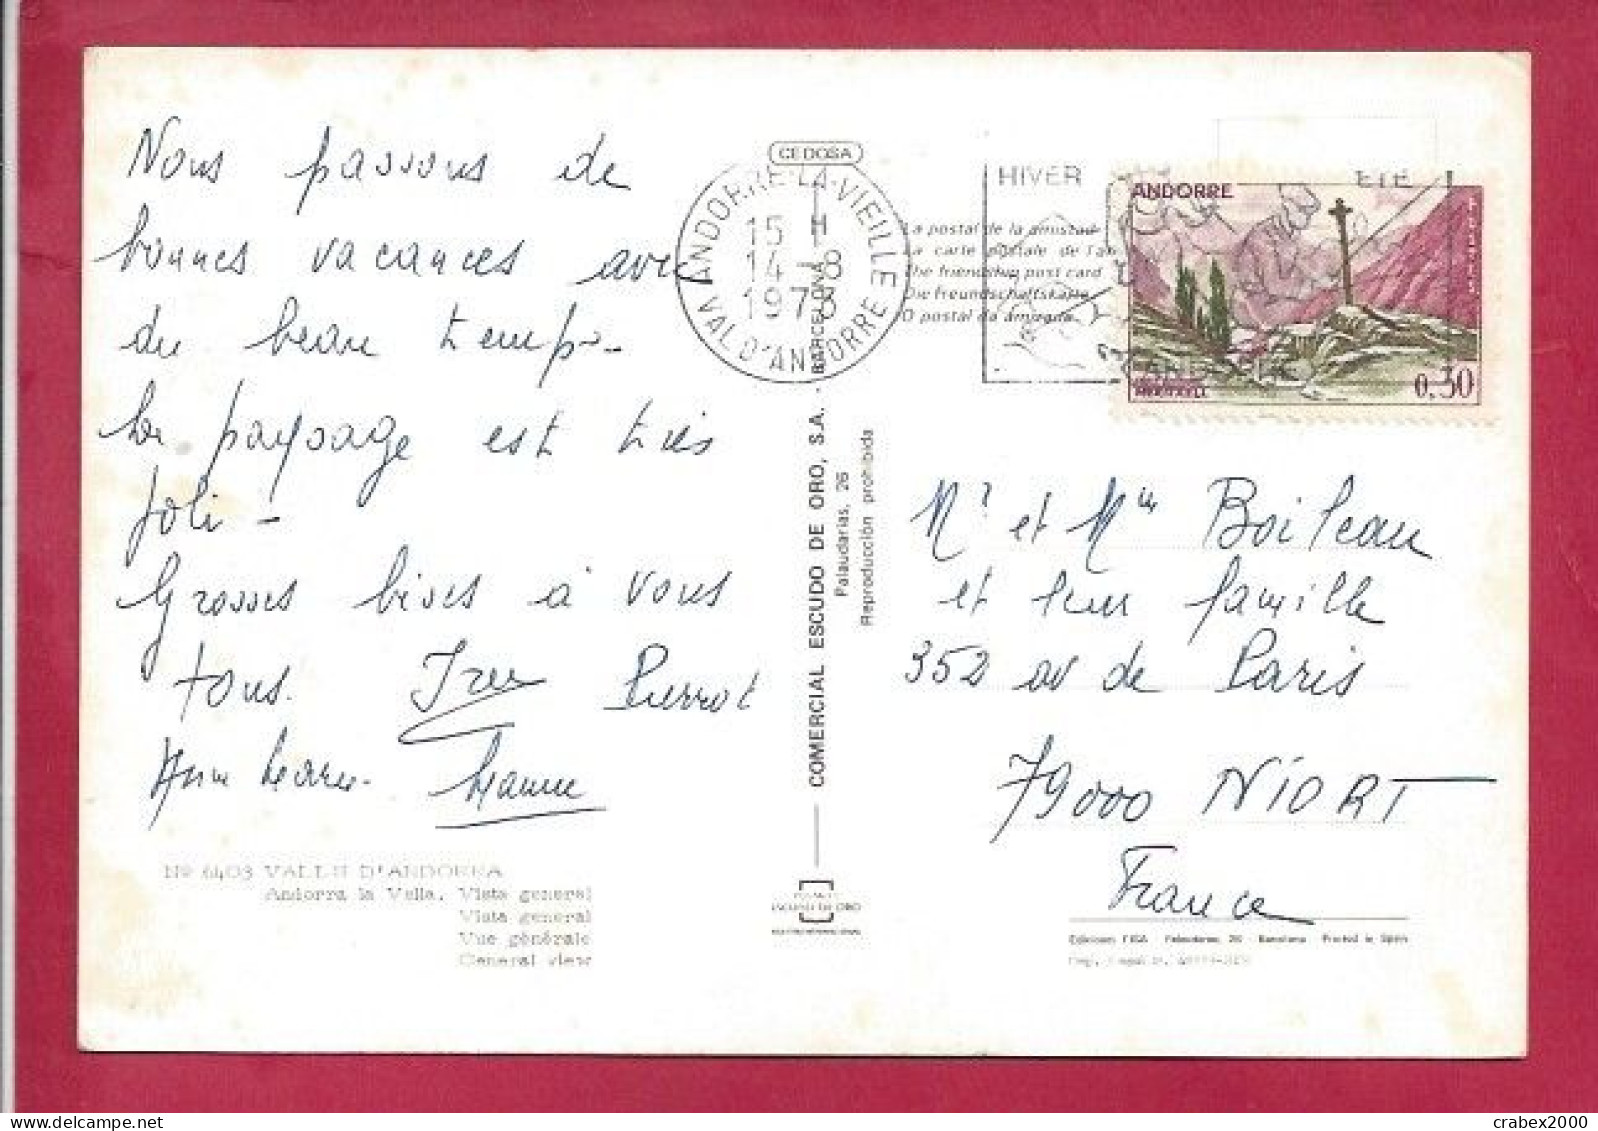 Nous passons de
bonnes vacances avec
du beau temps -
Le paysage est très
joli -
Grosses bises à vous
tous. Pierrot
CEDOSA
ANDORRE-LA-VIEILLE
15 H
14 - 8
1973
VAL D'ANDORRE
HIVER ETE
La postal de la amistad
La carte postale de l'am
The friendship post card
Die Freundschaftskarte
O postal da amizade
ANDORRE
0,30
COMERCIAL ESCUDO DE ORO, S.A. - BARCELONA
Palaudarias, 26
Reproducción prohibida
Mr et Mme Boileau
et leur famille
352 av de Paris
79000 NIORT
France
Nº 6403 VALLS D'ANDORRA
Andorra la Vella. Vista general
Vista general
Vue générale
General view
Ediciones FISA - Palaudarias, 26 - Barcelona Printed in Spain
crabex2000